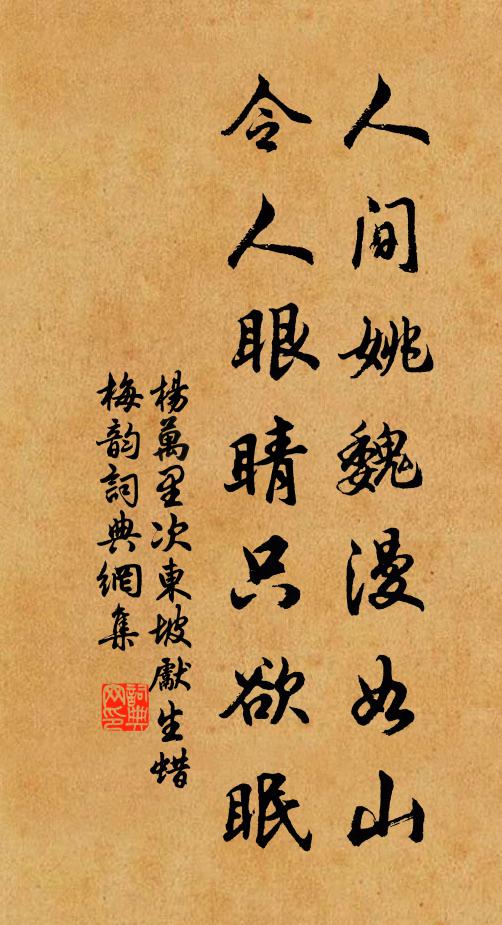 人间姚魏漫如山
令人眼睛只欲眠
楊萬里次東坡獻生蜡
梅韵詞典網集
詞典网印